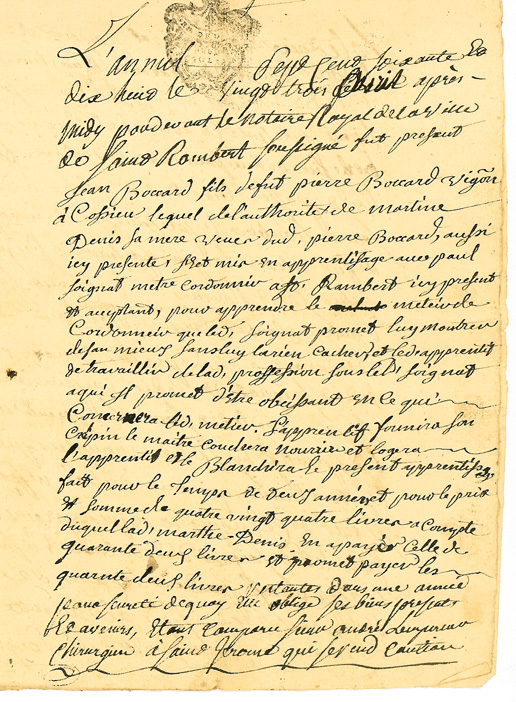 L'an mil Sept Cend Soixante Et
dix heud le vingd trois Avril après
midy pardevant le Notaire Royal de la ville
de Saind Rambert Soussigné fut présant
Jean Boccard fils de fut pierre Boccard vigon
à Cossieu lequel de l'authorité de martine
Denis sa mere veuve dud, pierre Boccard, aussi
icy presente, s'et mis en apprentisage avec paul
soignat metre Cordonnier a st, Rambert icy present
et acceptant, pour apprendre le metier de
Cordonnier que led, soignat promet luy montrer
de son mieux sans luy la rien Cacher, et led apprentif
de travillier de lad, profession sous led, soignat
a qui Il promet d'être obeissant en Ce qui
Concernera led, metier. L'apprentif fournira son
Crépin le maitre couchera nourrira et logera
l'apprentif et le Blanchira le present apprentissage
fait pour le temps de deux années et pour le prix
et somme de quatre vingt quatre livres a compte
duquel lad, marthe Denis En a payée Celle de
quarante deux livres Et promet payer les
quarante deux livres restantes dans une année
pour sureté de quoy Elle oblige ses biens presents
Et avenirs, Etant Comparu sieur andré
Chirurgien à Saint Jerome qui se rend Caution